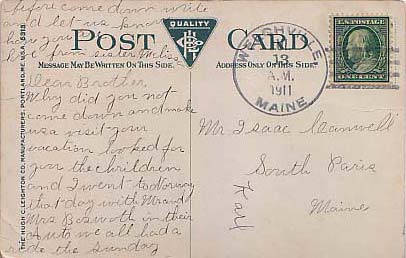 before come down write
and let us know
how you
love from sister Melissa
POST CARD
QUALITY
MESSAGE MAY BE WRITTEN ON THIS SIDE.
ADDRESS ONLY ON THIS SIDE.
THE HUGH C. LEIGHTON CO., MANUFACTURERS, PORTLAND, ME. U.S.A.
Dear Brother
Why did you not
come down and make
us a visit your
vacation looked for
you the children
and I went to Norway
that day with Mr and
Mrs Bosworth in their
Auto we all had a
ride the Sunday
WELCHVILLE
13
A.M.
1911
MAINE.
U.S. POSTAGE
ONE CENT
Mr. Isaac
South Paris
Maine
Karl